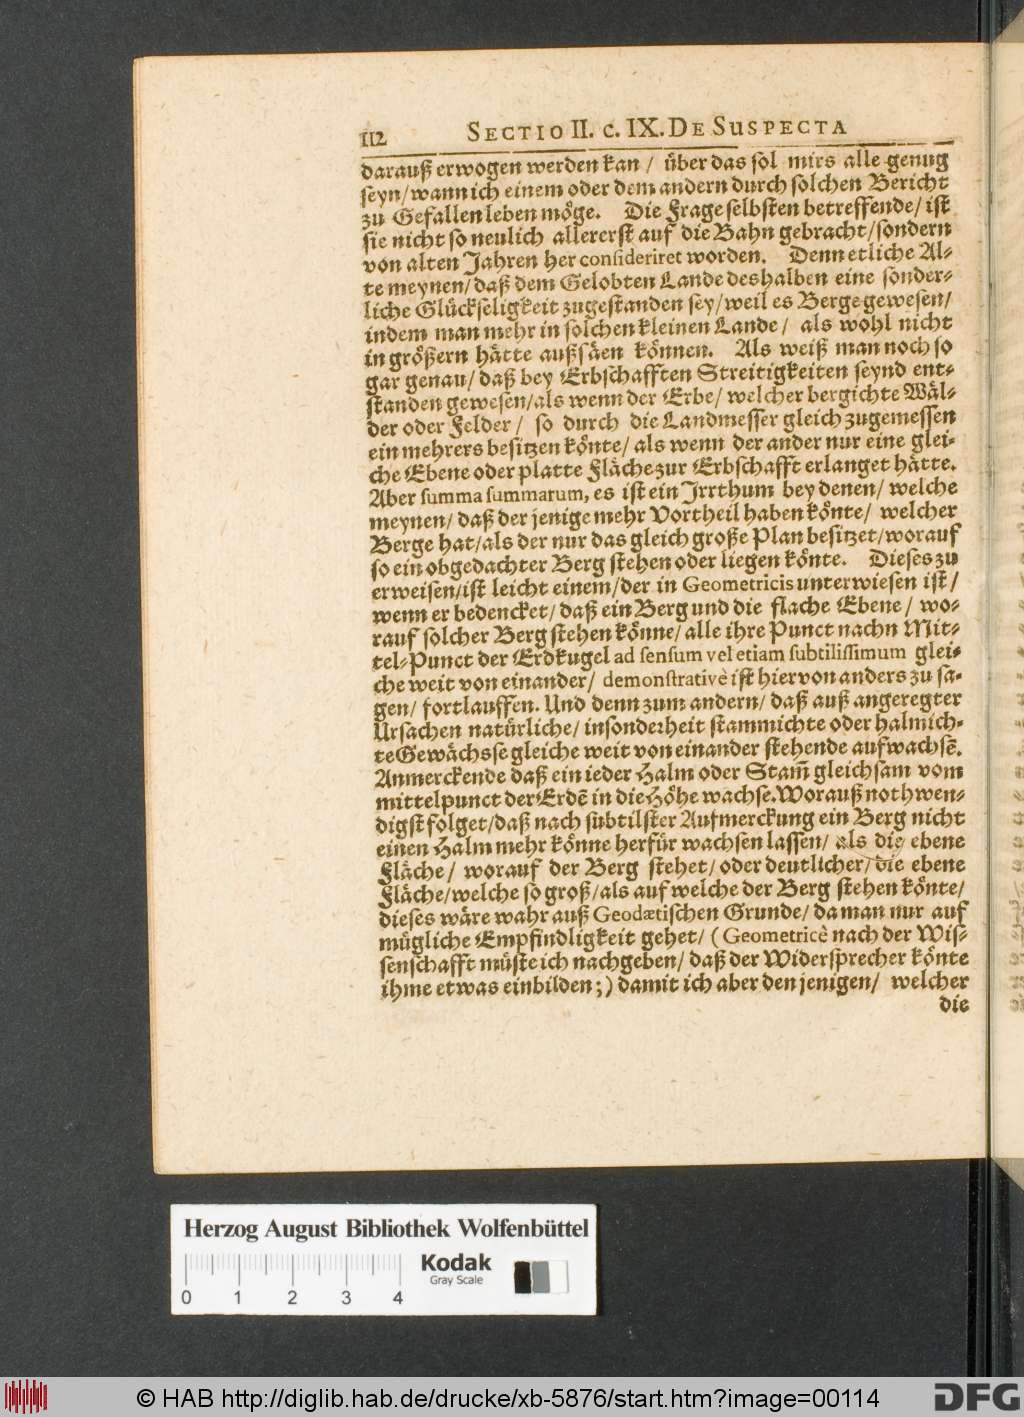 112 SECTIO II. c. IX. DE SUSPECTA
darauß erwogen werden kan / über das sol mirs alle genug
seyn/wann ich einem oder dem andern durch solchen Bericht
zu Gefallen leben möge. Die Frage selbsten betreffende/ ist
sie nicht so neulich allererst auf die Bahn gebracht/sondern
von alten Jahren her consideriret worden. Denn etliche Al-
te meynen/daß dem Gelobten Lande deshalben eine sonder-
liche Glückseligkeit zugestanden sey/weil es Berge gewesen/
indem man mehr in solchen kleinen Lande/ als wohl nicht
in größern hätte außsäen können. Als weiß man noch so
gar genau/daß bey Erbschafften Streitigkeiten seynd ent-
standen gewesen/als wenn der Erbe/ welcher bergichte Wäl-
der oder Felder/ so durch die Landmesser gleich zugemessen
ein mehrers besitzen könte/als wenn der ander nur eine glei-
che Ebene oder platte Fläche zur Erbschafft erlanget hätte.
Aber summa summarum, es ist ein Irrthum bey denen/ welche
meynen/daß der jenige mehr Vortheil haben könte/ welcher
Berge hat/als der nur das gleich große Plan besitzet/worauf
so ein obgedachter Berg stehen oder liegen könte. Dieses zu
erweisen/ist leicht einem/der in Geometricis unterwiesen ist/
wenn er bedencket/daß ein Berg und die flache Ebene/ wo-
rauf solcher Berg stehen könne/alle ihre Punct nachn Mit-
tel-Punct der Erdkugel ad sensum vel etiam subtilissimum glei-
che weit von einander/ demonstrativè ist hiervon anders zu sa-
gen/ fortlauffen. Und denn zum andern/ daß auß angeregter
Ursachen natürliche/ insonderheit stammichte oder halmich-
te Gewächsse gleiche weit von einander stehende aufwachsē.
Anmerckende daß ein ieder Halm oder Stam̄ gleichsam vom
mittelpunct der Erdē in die Höhe wachse. Worauß nothwen-
digst folget/daß nach subtilster Aufmerckung ein Berg nicht
einen Halm mehr könne herfür wachsen lassen/ als die ebene
Fläche/ worauf der Berg stehet/oder deutlicher/die ebene
Fläche/welche so groß/als auf welche der Berg stehen könte/
dieses wäre wahr auß Geodætischen Grunde/da man nur auf
mügliche Empfindligkeit gehet/ (Geometricè nach der Wis-
senschafft müste ich nachgeben/daß der Widersprecher könte
ihme etwas einbilden;) damit ich aber den jenigen/ welcher
die
Herzog August Bibliothek Wolfenbüttel
Kodak
Gray Scale
0 1 2 3 4
© HAB http://diglib.hab.de/drucke/xb-5876/start.htm?image=00114
DFG